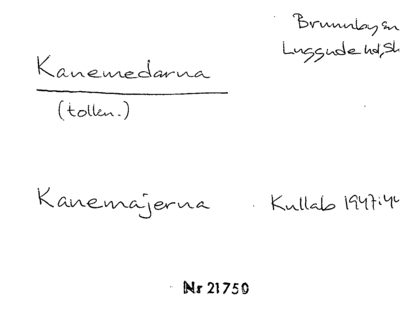 Brunnby sn
Luggude hd, Sk
Kanemedarna
(tolkn.)
Kanemajerna
Kullab 1947:44
Nr 21750